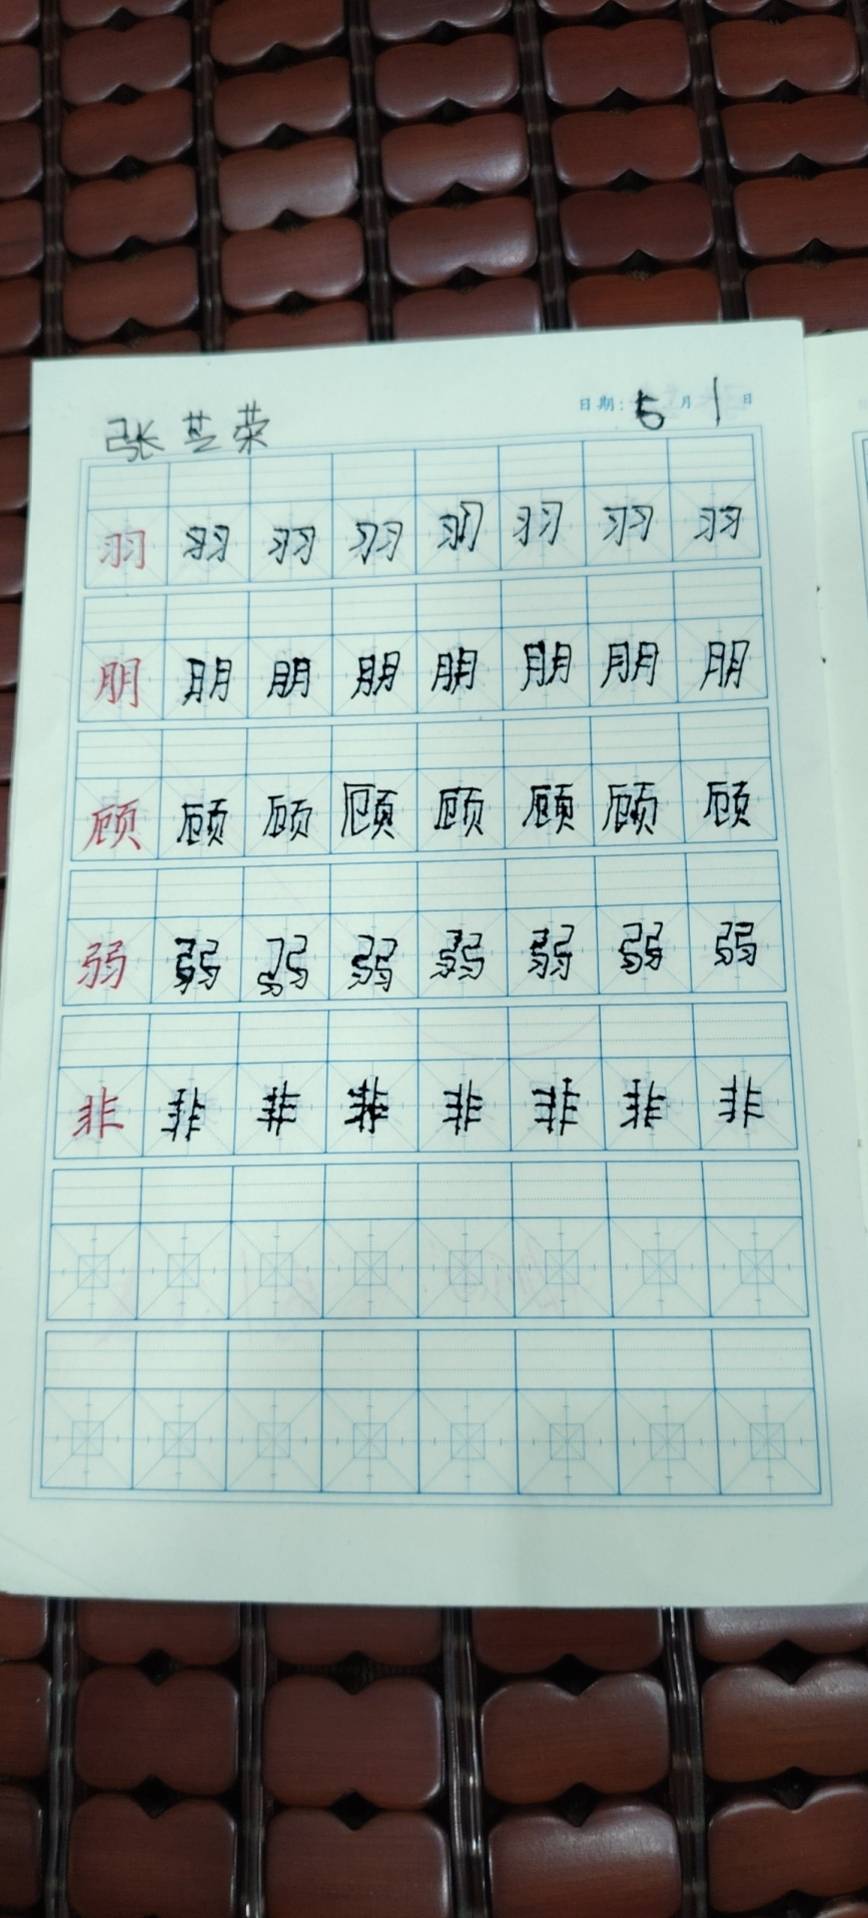 日期: 5 月 1 日
张芸荣
羽 羽 羽 羽 羽 羽 羽 羽
朋 朋 朋 朋 朋 朋 朋 朋
顾 顾 顾 顾 顾 顾 顾 顾
弱 弱 弱 弱 弱 弱 弱 弱
非 非 非 非 非 非 非 非